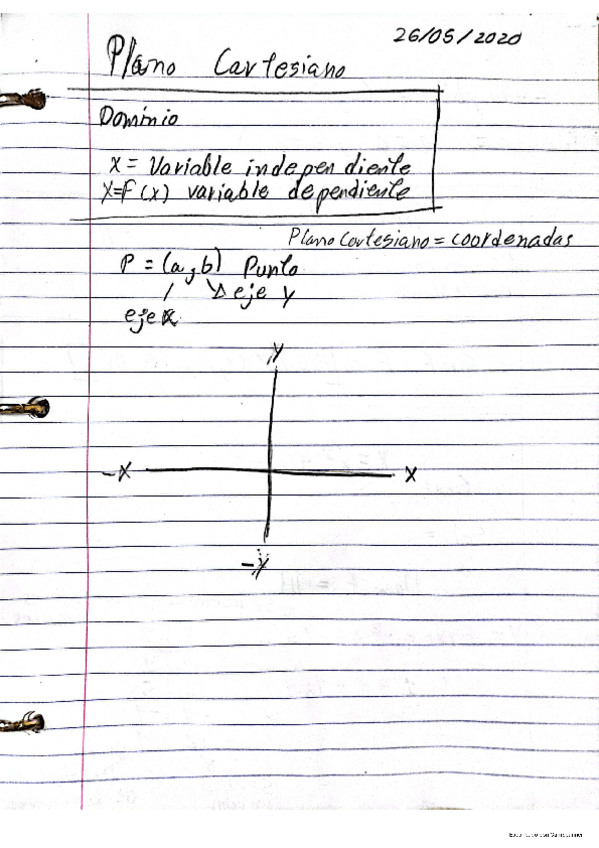 26/05/2020
Plano Cartesiano
Domínio
x = Variable indepen diente
Y=F(x) variable dependiente
Plano Cartesiano = coordenadas
P = (a,b) Punto
eje y
eje x
y
-x x
-y